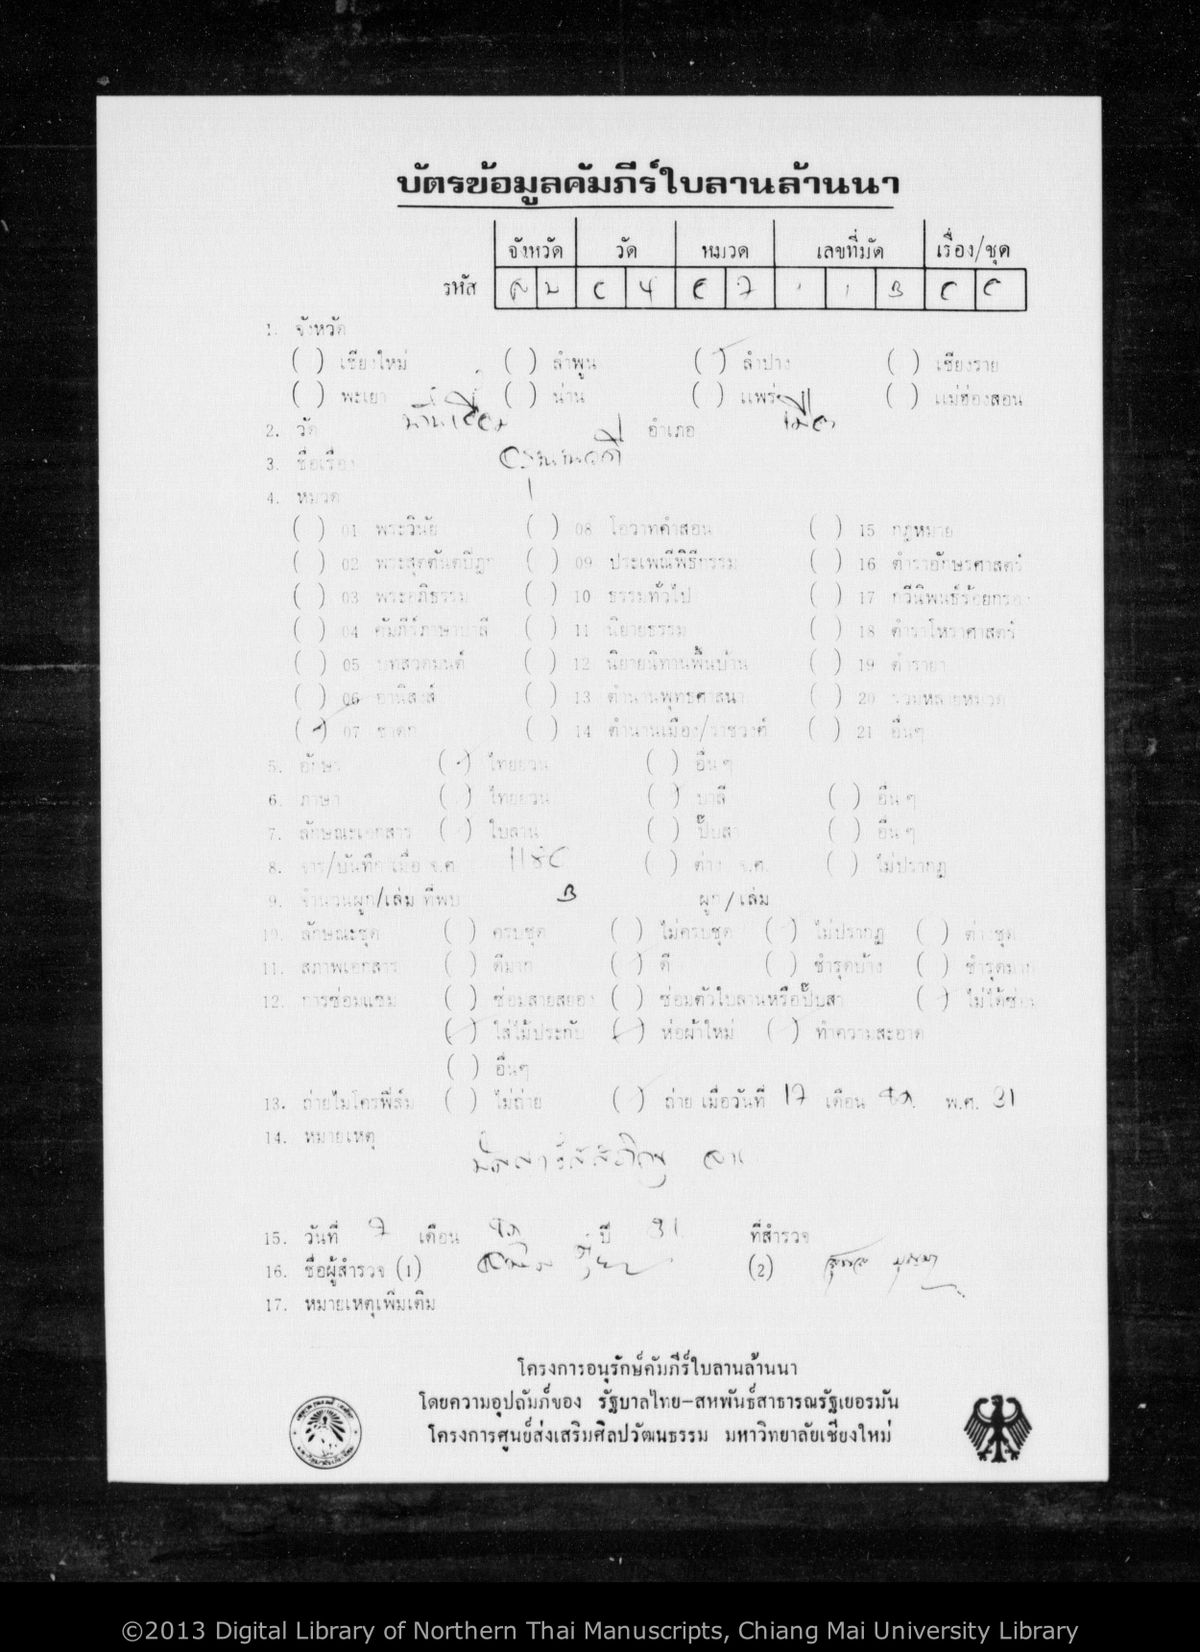 บัตรข้อมูลคัมภีร์ใบลานล้านนา
จังหวัด วัด หมวด เลขที่มัด เรื่อง/ชุด
รหัส
1. จังหวัด
( ) เชียงใหม่ ( ) ลำพูน (✓) ลำปาง ( ) เชียงราย
( ) พะเยา ( ) น่าน ( ) แพร่ ( ) แม่ฮ่องสอน
2. วัด อำเภอ
3. ชื่อเรื่อง
4. หมวด
( ) 01 พระวินัย ( ) 08 โอวาทคำสอน ( ) 15 กฎหมาย
( ) 02 พระสุตตันตปิฎก ( ) 09 ประเพณีพิธีกรรม ( ) 16 ตำราอักษรศาสตร์
( ) 03 พระอภิธรรม ( ) 10 ธรรมทั่วไป ( ) 17 กวีนิพนธ์ร้อยกรอง
( ) 04 คัมภีร์ภาษาบาลี ( ) 11 นิยายธรรม ( ) 18 ตำราโหราศาสตร์
( ) 05 บทสวดมนต์ ( ) 12 นิยายนิทานพื้นบ้าน ( ) 19 ตำรายา
( ) 06 อานิสงส์ ( ) 13 ตำนานพุทธศาสนา ( ) 20 รวมหลายหมวด
(✓) 07 ชาดก ( ) 14 ตำนานเมือง/ราชวงศ์ ( ) 21 อื่นๆ
5. อักษร (✓) ไทยยวน ( ) อื่นๆ
6. ภาษา ( ) ไทยยวน (✓) บาลี ( ) อื่นๆ
7. ลักษณะเอกสาร ( ) ใบลาน ( ) ปั๊บสา ( ) อื่นๆ
8. จาร/บันทึก เมื่อ จ.ศ. ( ) ต่าง จ.ศ. ( ) ไม่ปรากฏ
9. จำนวนผูก/เล่ม ที่พบ ผูก/เล่ม
10. ลักษณะชุด ( ) ครบชุด ( ) ไม่ครบชุด ( ) ไม่ปรากฏ ( ) ต่างชุด
11. สภาพเอกสาร ( ) ดีมาก (✓) ดี ( ) ชำรุดบ้าง ( ) ชำรุดมาก
12. การซ่อมแซม ( ) ซ่อมสายสยอง ( ) ซ่อมตัวใบลานหรือปั๊บสา (✓) ไม่ได้ซ่อม
(✓) ใส่ไม้ประกับ (✓) ห่อผ้าใหม่ (✓) ทำความสะอาด
( ) อื่นๆ
13. ถ่ายไมโครฟิล์ม ( ) ไม่ถ่าย (✓) ถ่าย เมื่อวันที่ 17 เดือน พ.ศ. 31
14. หมายเหตุ
15. วันที่ 7 เดือน ปี 31 ที่สำรวจ
16. ชื่อผู้สำรวจ (1) (2)
17. หมายเหตุเพิ่มเติม
โครงการอนุรักษ์คัมภีร์ใบลานล้านนา
โดยความอุปถัมภ์ของ รัฐบาลไทย-สหพันธ์สาธารณรัฐเยอรมัน
โครงการศูนย์ส่งเสริมศิลปวัฒนธรรม มหาวิทยาลัยเชียงใหม่
©2013 Digital Library of Northern Thai Manuscripts, Chiang Mai University Library